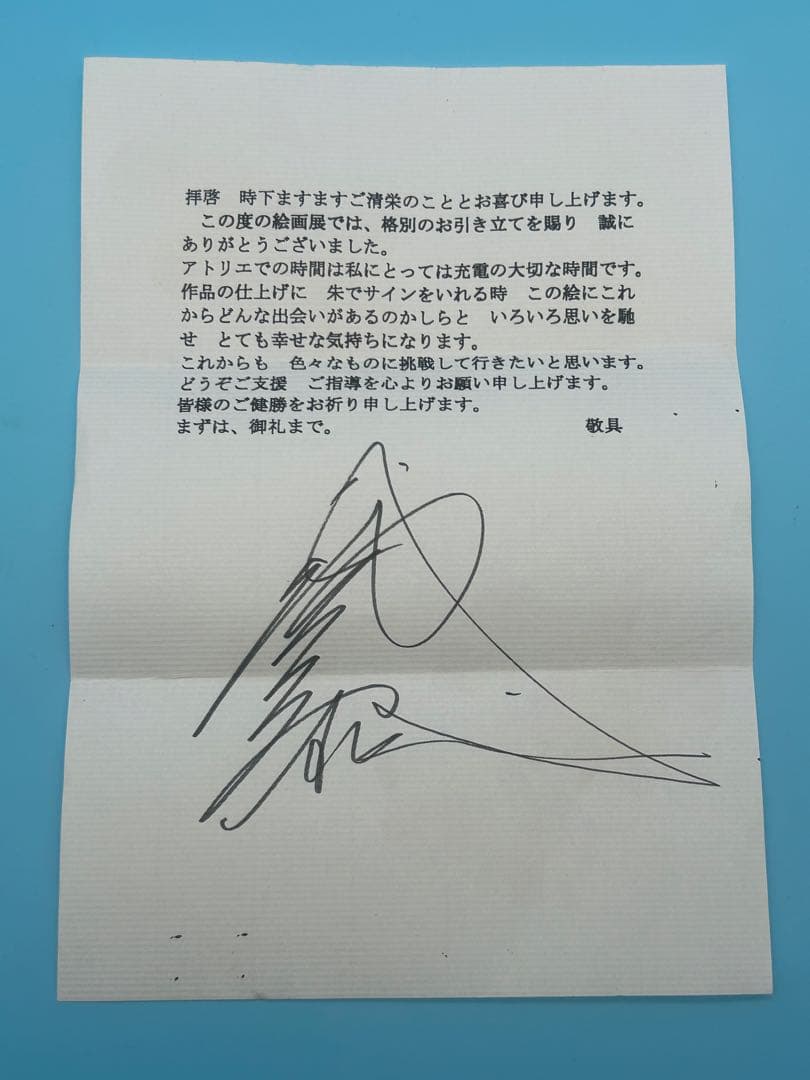 拝啓　時下ますますご清栄のこととお喜び申し上げます。
この度の絵画展では、格別のお引き立てを賜り　誠に
ありがとうございました。
アトリエでの時間は私にとっては充電の大切な時間です。
作品の仕上げに　朱でサインをいれる時　この絵にこれ
からどんな出会いがあるのかしらと　いろいろ思いを馳
せ　とても幸せな気持ちになります。
これからも　色々なものに挑戦して行きたいと思います。
どうぞご支援　ご指導を心よりお願い申し上げます。
皆様のご健勝をお祈り申し上げます。
まずは、御礼まで。　敬具